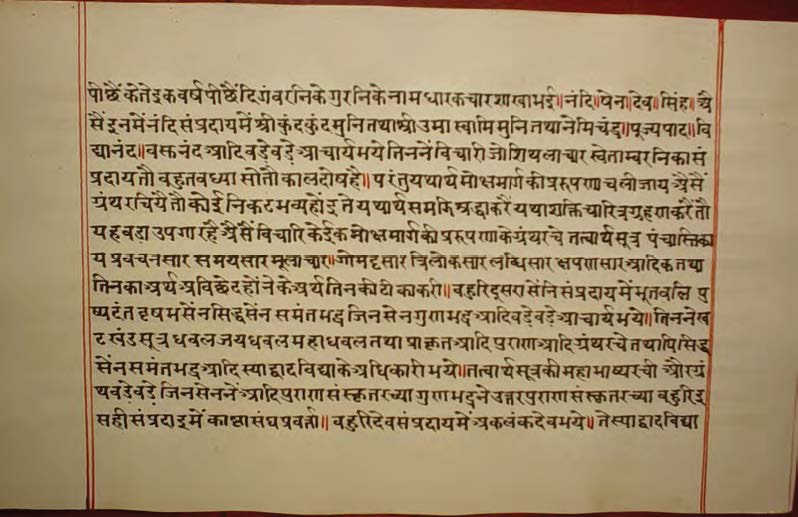 पीछैं केतेइक वर्ष पीछैं दिगंवरनिके गुरनिके नामधारक चार शाखा भई॥ नंदि॥ षेन॥ देव॥ सिंह॥ अै
सैं इनमें नंदि संप्रदायमें श्री कुंदकुंद मुनि तथा श्री उमास्वामि मुनि तथा नेमिचंद्र॥ पूज्यपाद॥ वि
द्यानंद॥ वस्तनंद आदि वडे वडे आचार्य भये तिननें विचारी जो शिथलाचार स्वेताम्बरनिका सं
प्रदाय तौ वहुत वध्या सो तौ काल दोष है॥ परंतु यथार्थ मोक्षमार्ग की प्ररुपणा चली जाय अैसैं
ग्रंथ रचिये तौ कोई निकट भव्य होंइ ते यथार्थ समझि श्रद्धा करैं यथाशक्ति चारित्र ग्रहण करैं तौ
यह वडा उपगार है अैसैं विचारि केईक मोक्षमार्ग की प्ररुपणा के ग्रंथ रचे तत्वार्थसूत्र पंचास्तिका
य प्रवचनसार समयसार मूलाचार॥ गोमट्टसार त्रिलोकसार लब्धिसार क्षपणसार आदिक तथा
तिनका अर्थ अविछेद होंनेके अर्थ तिनकी टीका करी॥ वहुरि दूसरा सेंनि संप्रदायमें भूतवलि पु
ष्पदंत वृषभसेंन सिद्धसेंन समंतभद्र जिनसेन गुणभद्र आदि वडे वडे आचार्य भये॥ तिननें ख
टखंड सूत्र धवल जयधवल महाधवल तथा प्राकृत आदिपुराण आदि ग्रंथ रचे तथापि सिद्ध
सेंन समंतभद्र आदि स्याद्वादविद्याके अधिकारी भये॥ तत्वार्थसूत्र की महाभाष्य रची और ग्रं
थ वडे वडे जिनसेननें आदिपुराण संस्कृत रच्या गुणभद्रने उत्तरपुराण संस्कृत रच्या वहुरि इ
सही संप्रदाइमें काष्ठासंघ प्रवर्ता॥ वहुरि देव संप्रदायमें अकलंकदेव भये॥ ते स्याद्वादविद्या